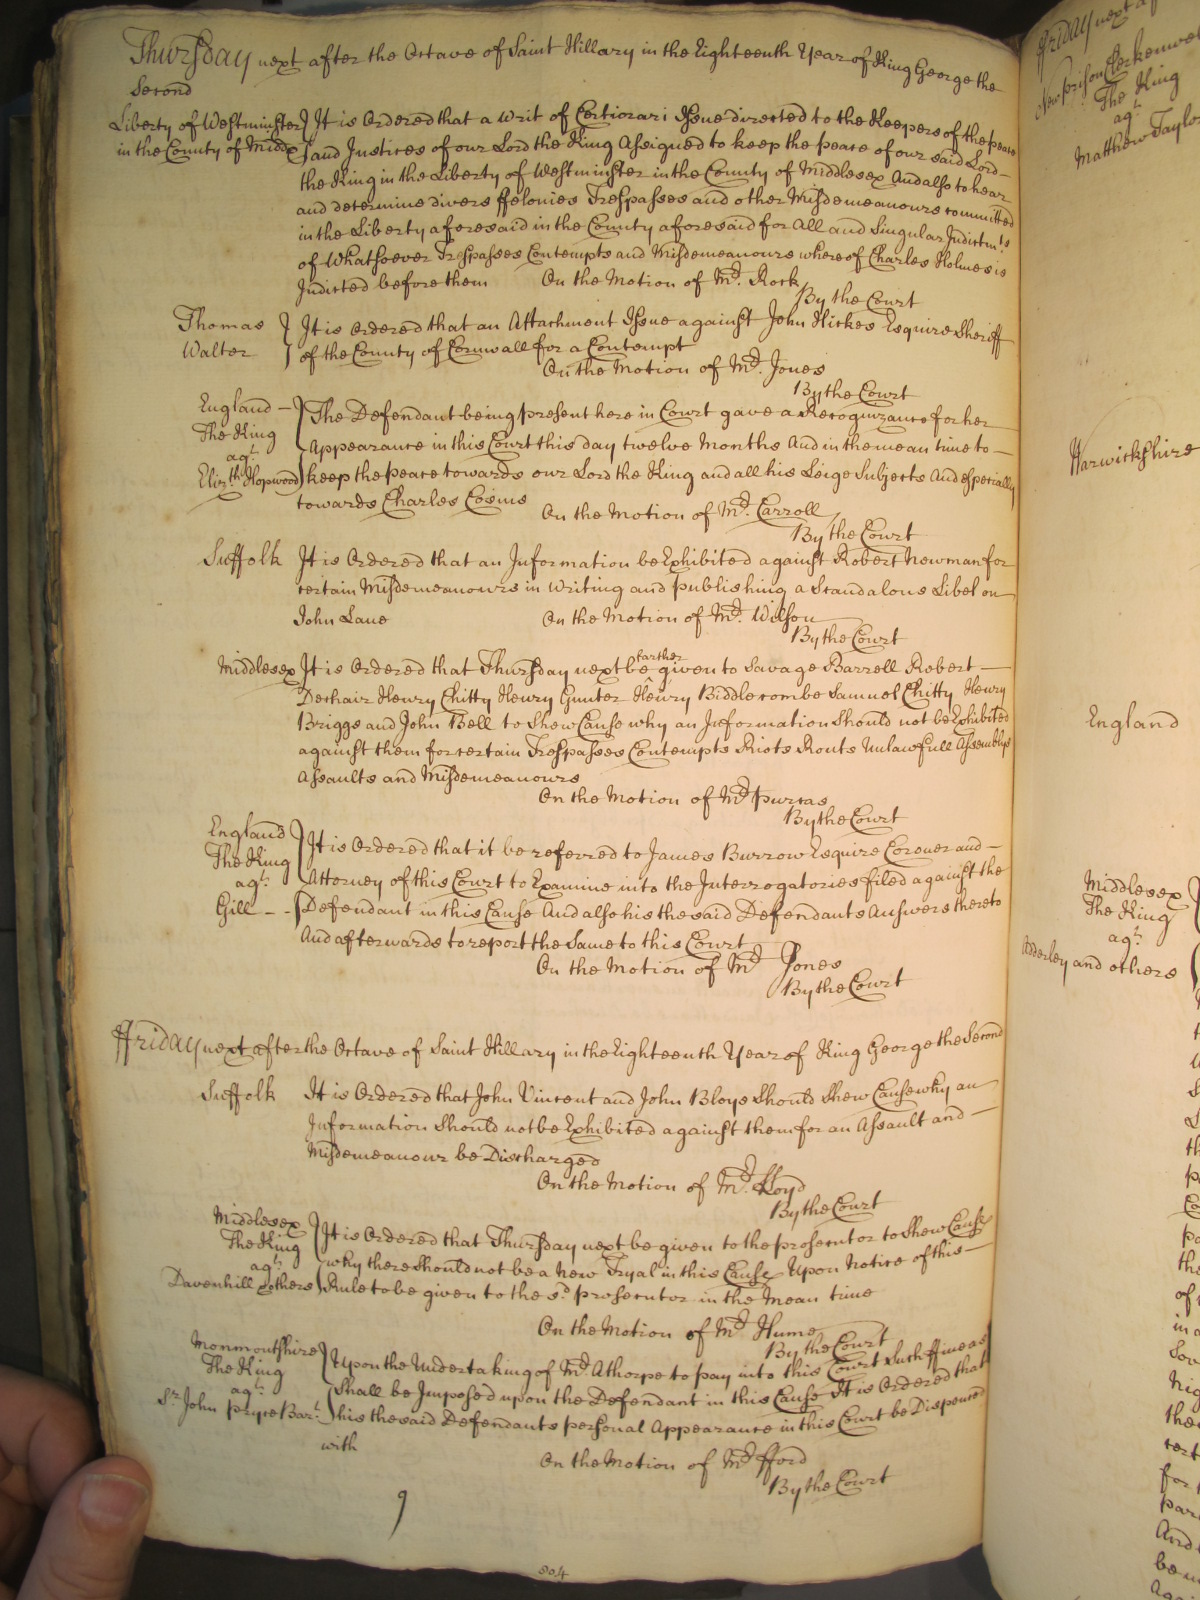 Thursday next after the Octave of Saint Hillary in the Eighteenth Year of King George the
Second
Liberty of Westminster } It is Ordered that a Writ of Certiorari Issue directed to the Keepers of the peace
in the County of Middx } and Justices of our Lord the King Assigned to keep the peace of our said Lord
the King in the Liberty of Westminster in the County of Middlesex And also to hear
and determine divers ffelonies Trespasses and other Misdemeanours committed
in the Liberty aforesaid in the County aforesaid for All and Singular Indictmts
of Whatsoever Trespasses Contempts and Misdemeanours whereof Charles Holmes is
Indicted before them On the Motion of Mr. Rock
By the Court
Thomas } It is Ordered that an Attachment Issue against John Hickes Esquire Sheriff
Walter } of the County of Cornwall for a Contempt
On the Motion of Mr. Jones
By the Court
England The Defendant being present here in Court gave a Recognizance for her
The King Appearance in this Court this day twelve Months And in the mean time to
agt.
Elizth Hopwood keep the peace towards our Lord the King and all his Leige Subjects And especially
towards Charles Cosins On the Motion of Mr. Carroll
By the Court
Suffolk It is Ordered that an Information be Exhibited against Robert Newman for
certain Misdemeanours in Writing and publishing a Scandalous Libel on
John Lane On the Motion of Mr. Wilson
By the Court
Middlesex It is Ordered that Thursday next be farther given to Savage Barrell Robert
Dechair Henry Chitty Henry Gunter Henry Biddlecombe Samuel Chitty Henry
Briggs and John Bell to Shew Cause why an Information Should not be Exhibited
against them for certain Trespasses Contempts Riots Routs Unlawfull Assemblys
Assaults and Misdemeanours
On the Motion of Mr. Purcas
By the Court
England It is Ordered that it be referred to James Burrow Esquire Coroner and
The King Attorney of this Court to Examine into the Interrogatories filed against the
agt.
Gill Defendant in this Cause And also his the said Defendants Answers thereto
And afterwards to report the Same to this Court
On the Motion of Mr Jones
By the Court
ffriday next after the Octave of Saint Hillary in the Eighteenth Year of King George the Second
Suffolk It is Ordered that John Vincent and John Bloys Should Shew Cause why an
Information Should not be Exhibited against them for an Assault and
Misdemeanour be Discharged
On the Motion of Mr. Lloyd
By the Court
Middlesex
The King It is Ordered that Thursday next be given to the prosecutor to Shew Cause
agt. why there Should not be a New Tryal in this Cause Upon Notice of this
Davenhill & others Rule to be given to the sd. prosecutor in the Mean time
On the Motion of Mr. Hume
By the Court
Monmouthshire
The King Upon the Undertaking of Mr. Athorpe to pay into this Court Such ffine as
agt. Shall be Imposed upon the Defendant in this Cause It is Ordered that
Sr. John Pryce Bart. his the said Defendants personal Appearance in this Court be Dispenced
with
On the Motion of Mr. fford
By the Court
804
ffriday next
New Prison Clerkenwe
The King
agt.
Matthew Taylo
Warwickshire
England
Middlesex
The King
agt.
Adderley and others